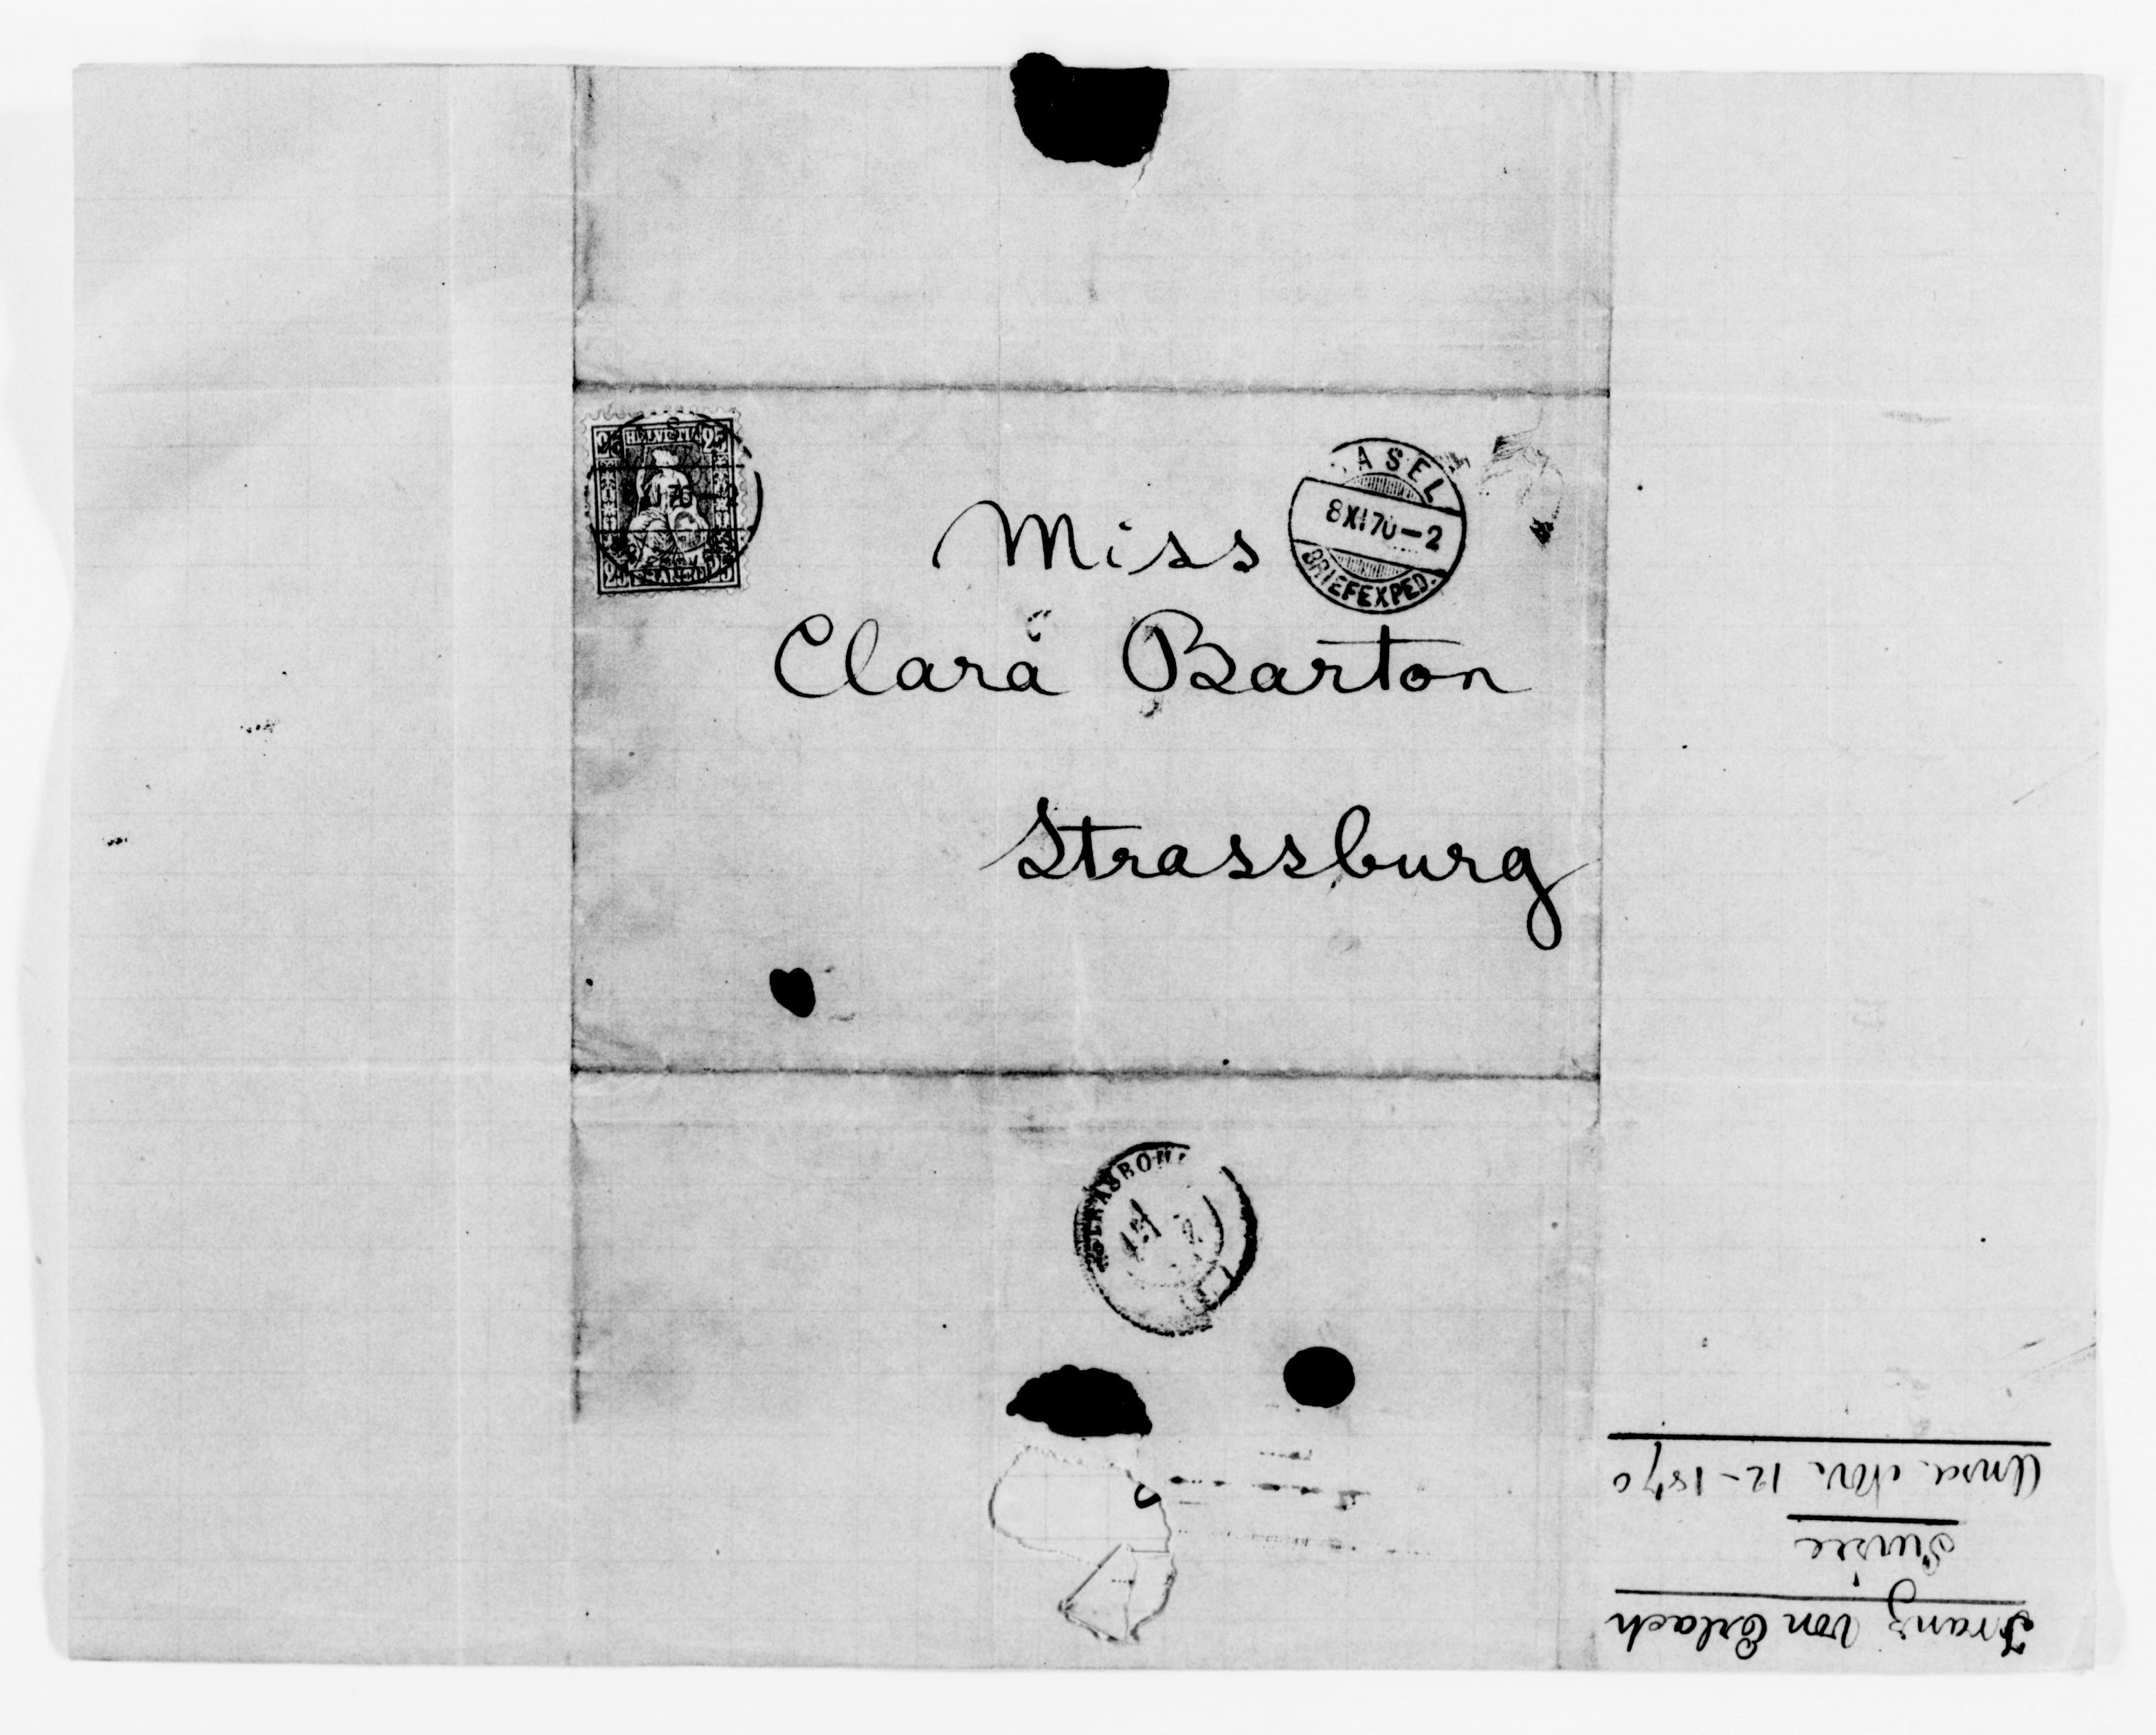 25 HELVETIA 25
Miss
ASEL
8 XI 70-2
BRIEFEXPED.
Clara Barton
Strassburg
STRASBOU
Franz von Erlach
Suisse
Answd. Nov. 12 - 1870